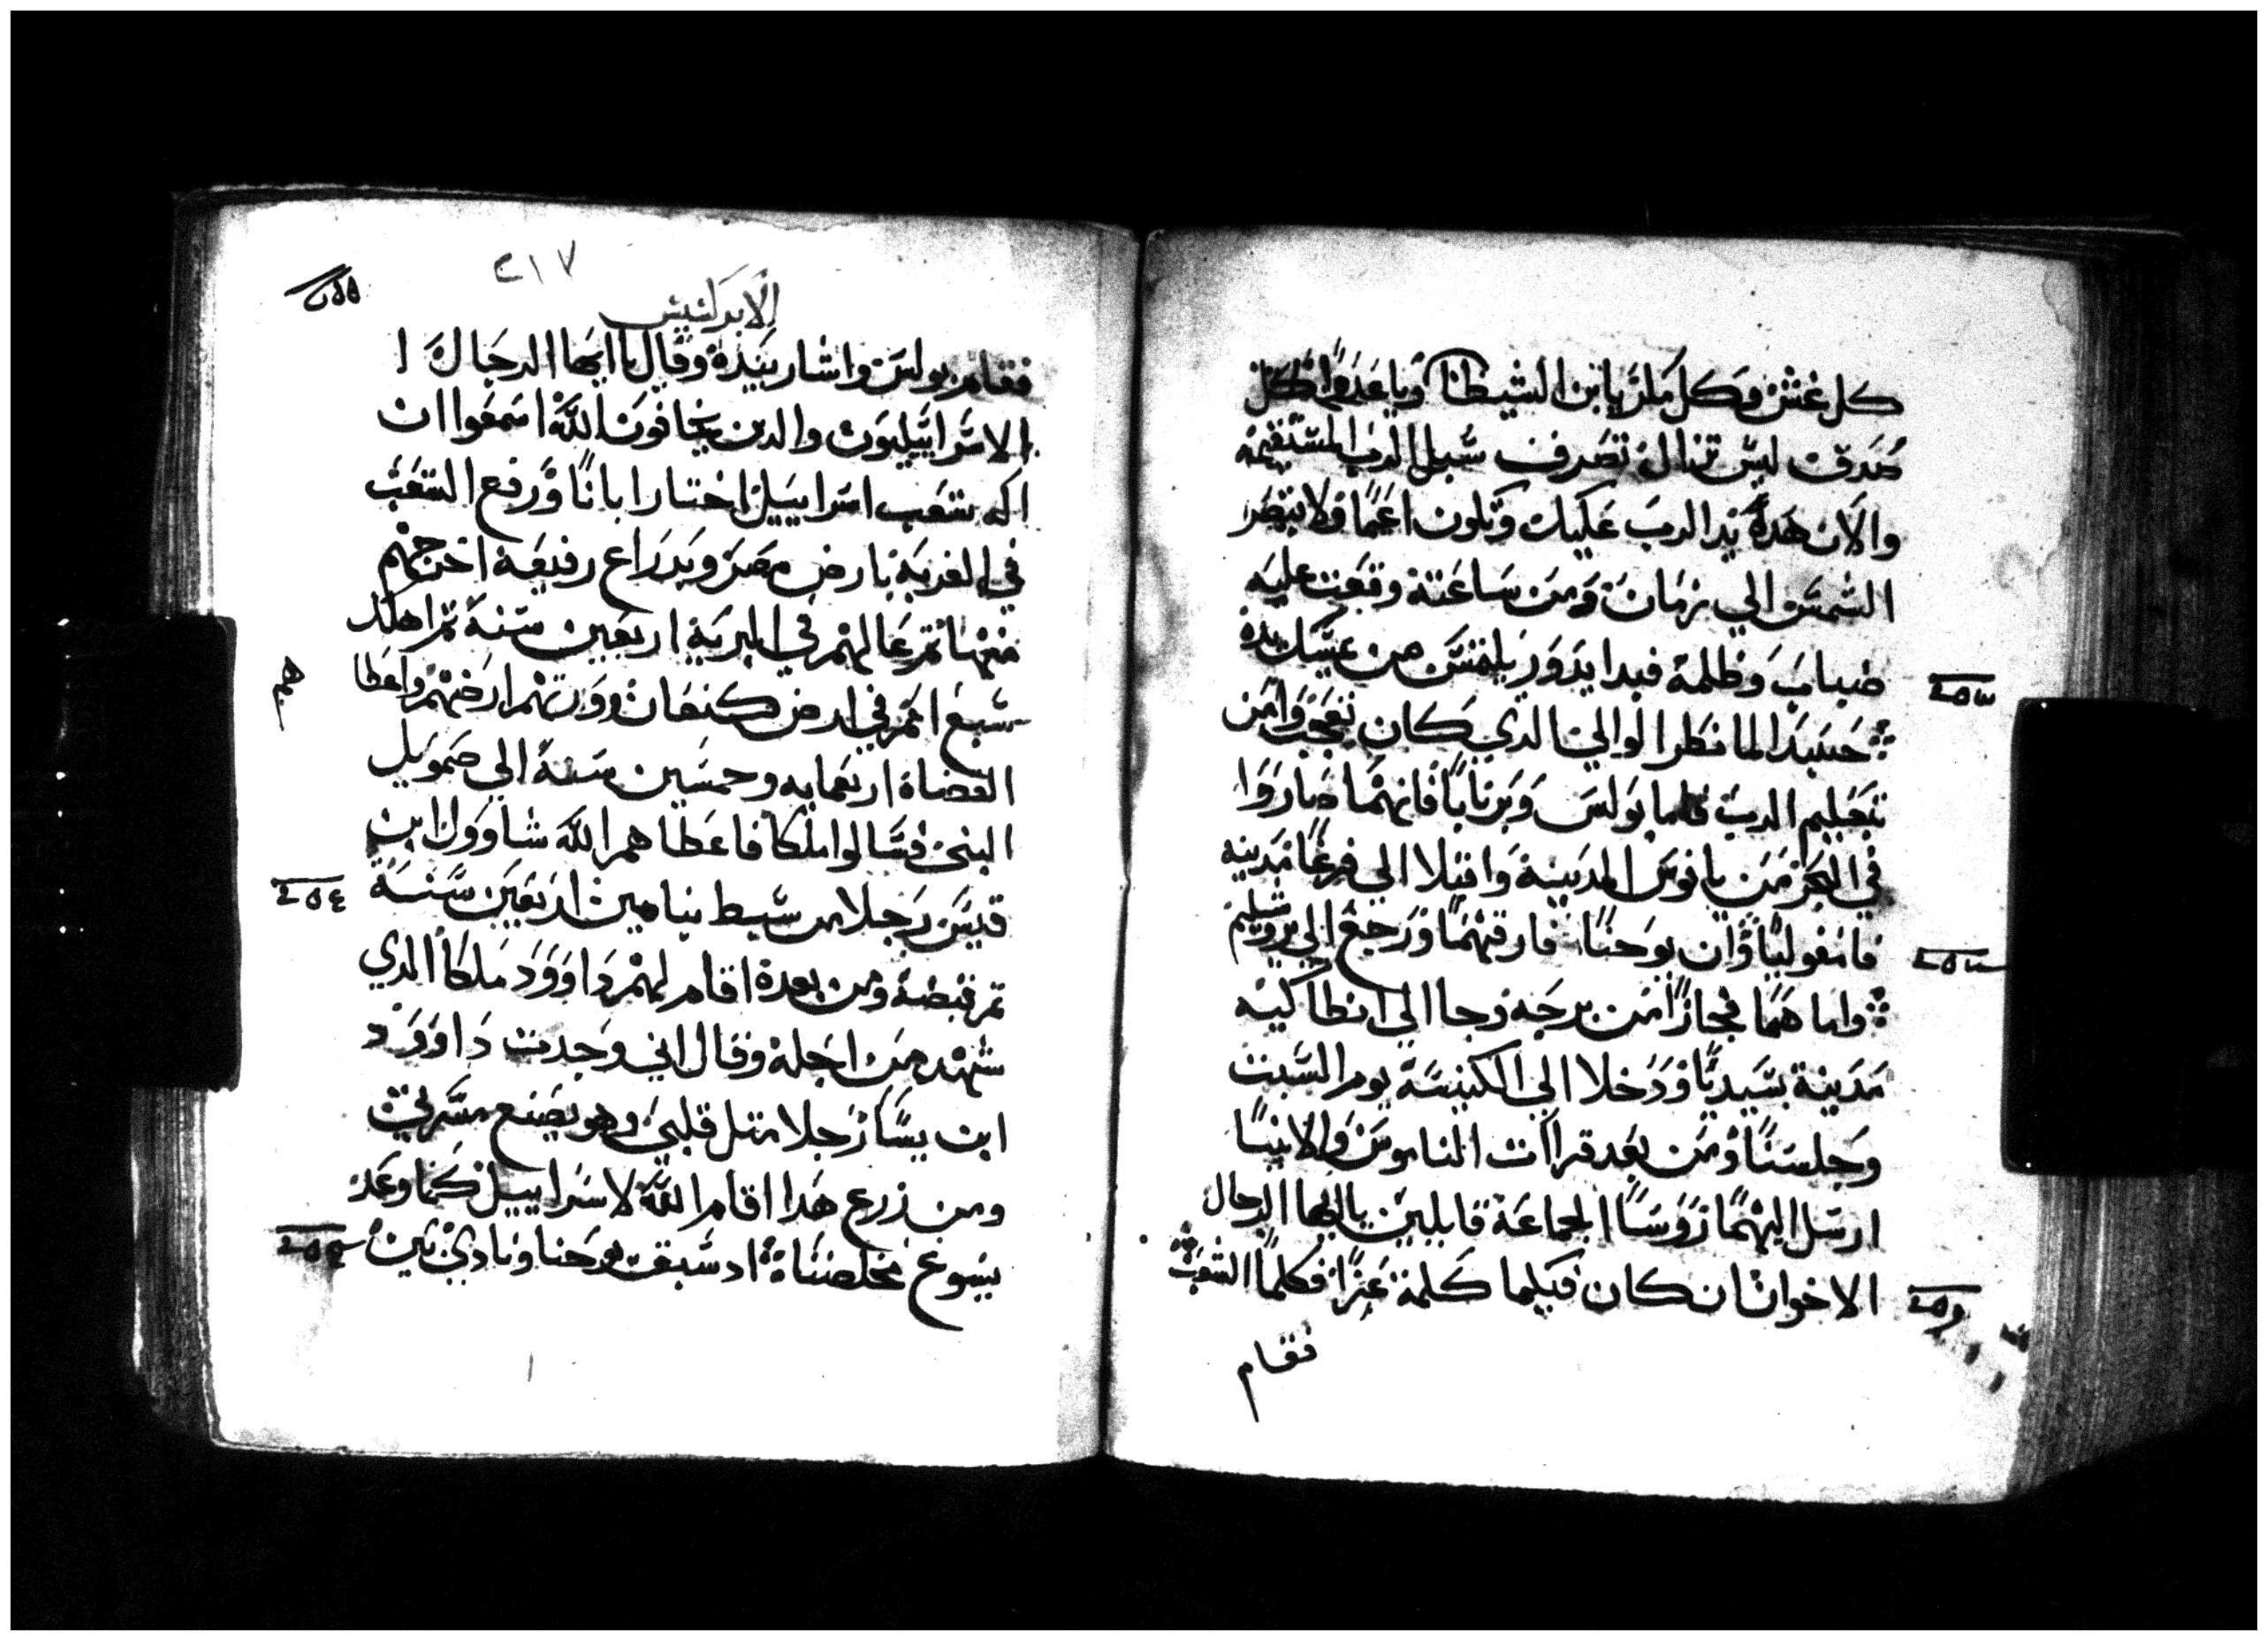 كل غش وكل مكر يا ابن الشيطان ويا عدوا كل
صدق ليس تزال تصرف سبل الرب المستقيمه
والان هده يد الرب عليك وتكون اعما ولا تبصر
الشمس الي زمان ومن ساعته وقعت عليه
ضباب وظلمة فبدا يدور يلتمس من يمسك يده
حينيد لما نظر الوالي الدي كان تعجب وامن
بتعليم الرب فاما بولس وبرنابا فانهما صاروا
في البحر من بافوس المدينة واقبلا الي فرغا مدينه
فامفوليا وان يوحنا فارقهما ورجع الي يروشليم
واما هما فجازا من برجه وجاا الي انطاكيه
مدينة بسيديا ودخلا الي الكنيسة يوم السبت
وجلسنا ومن بعد قراات الناموس والانبيا
ارسل اليهما روسا الجماعة قايلين يا ايها الرجال
الاخوان ان كان فيكما كلمة عزا فكلما الشعب
فقام
٢١٧
الابركسيس
فقام بولس واشار بيده وقال يا ايها الرجال ا
الاسراييليون والدين يخافون الله اسمعوا ان
اله شعب اسراييل اختار ابانا ورفع الشعب
في الغربة بارض مصر وبدراع رفيعة اخرجهم
منها ثم عالهم في البرية اربعين سنة ثم اهلك
سبع امم في ارض كنعان وورتهم ارضهم واعطا
هم
القضاة اربعمايه وخمسين سنة الي صمويل
النبي فسالوا ملكا فاعطاهم الله شاوول ابن
قيس رجلا من سبط بنيامين اربعين سنة
تم قبضة ومن بعدة اقام لهم داوود ملكا الدي
شهد من اجله وقال اني وجدت داوود
ابن يسا رجلا متل قلبي وهو يصنع مسرتي
ومن زرع هدا اقام الله لاسراييل كما وعد
يسوع مخلصناة اد سبق يوحنا ونادي بين